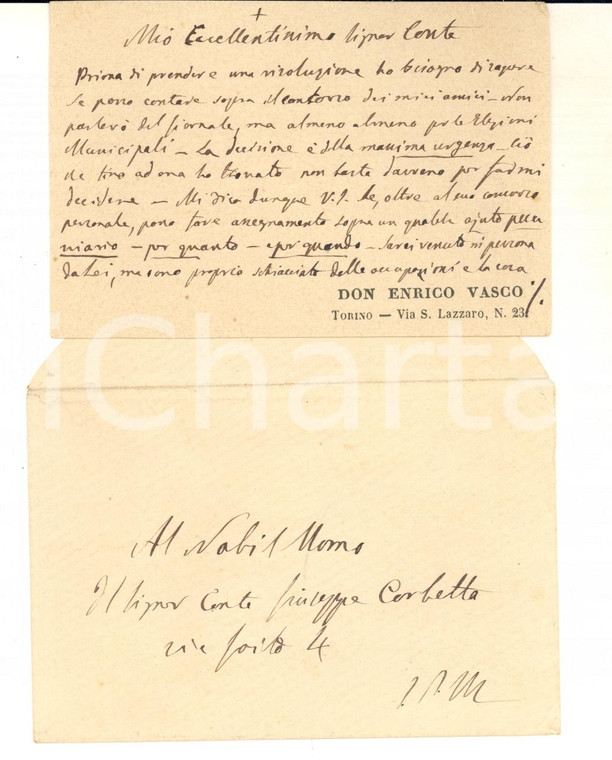 +
Mio Eccellentissimo Signor Conte
Prima di prendere una risoluzione ho bisogno di sapere
se posso contare sopra il contorzo dei miei amici – Non
parlerò del giornale, ma almeno almeno per le Elezioni
Municipali – La decisione è della massima urgenza – Ciò
che fino ad ora ho trovato non basta davvero per farmi
decidere – Mi dica dunque V. S. se, oltre al suo concorso
personale, posso fare assegnamento sopra un qualche ajuto pecu
niario – per quanto – e per quando – Sarei venuto in persona
da Lei, ma sono proprio schiacciato dalle occupazioni e la cosa
DON ENRICO VASCO ./.
TORINO — Via S. Lazzaro, N. 23.
iCharta
Al Nobil Uomo
Il Signor Conte Giuseppe Corbetta
via Goito 4